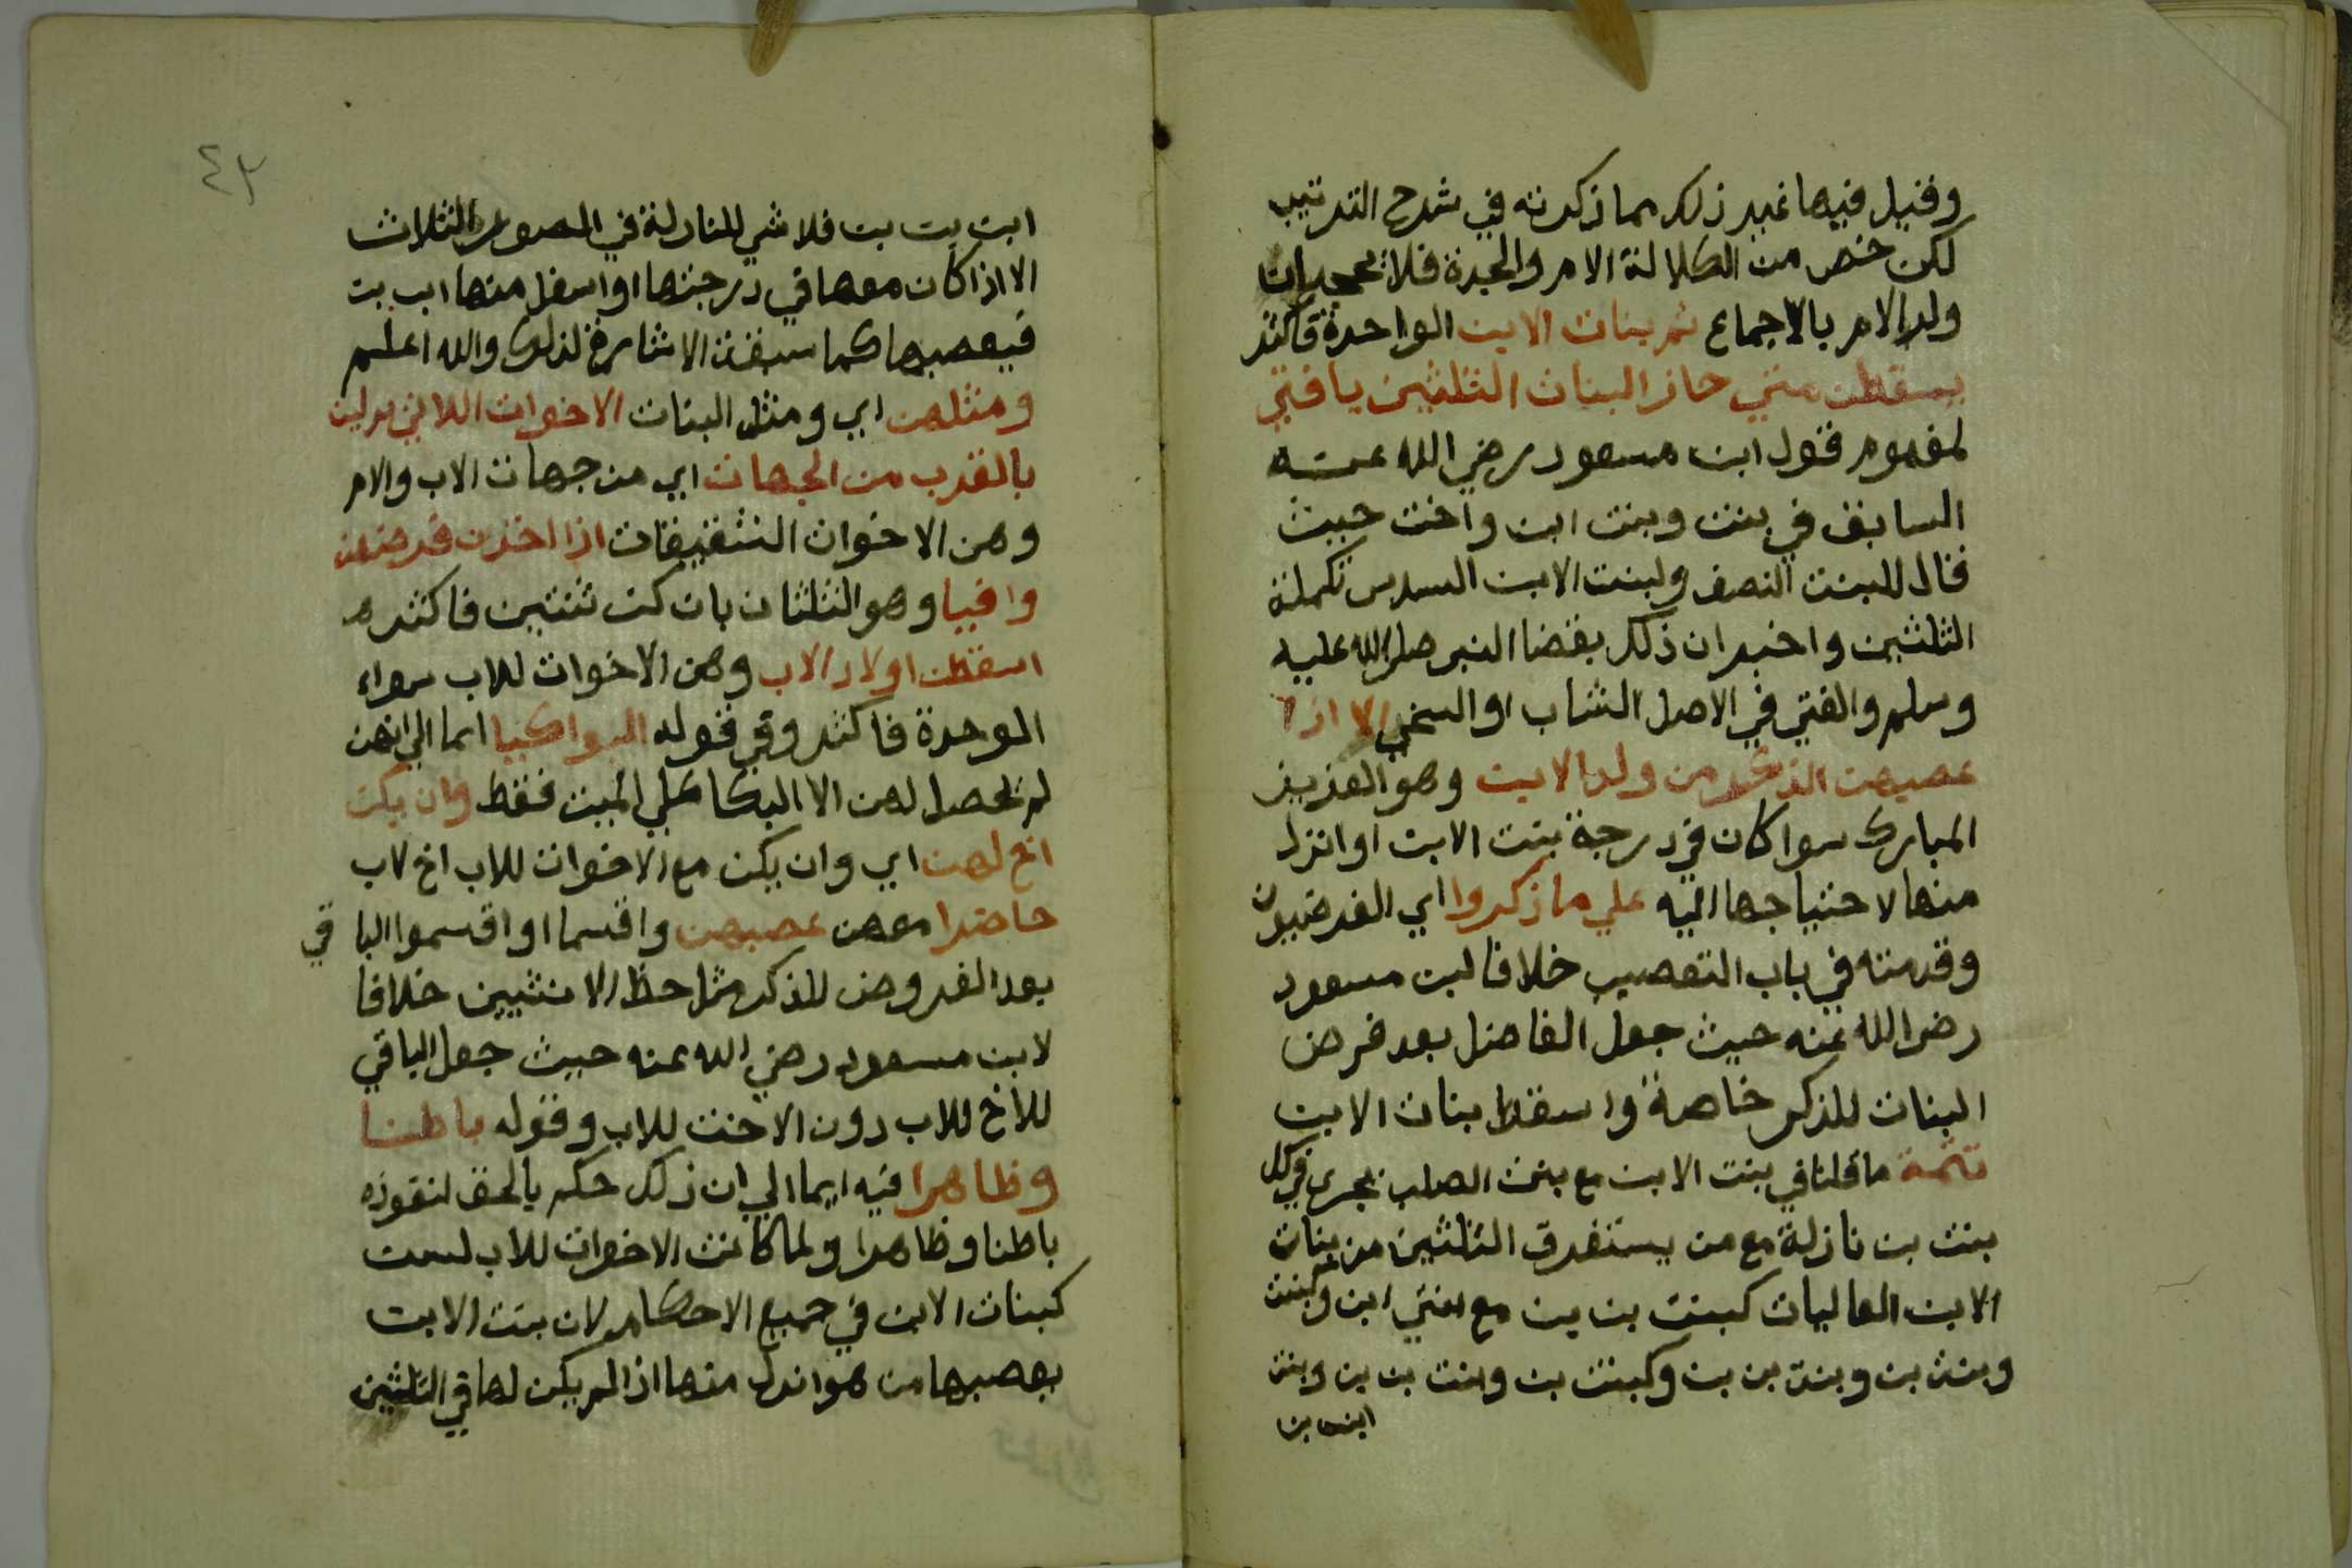 وقيل فيها غير ذلك مما ذكرته في شرح الترتيب
لكن خص من الكلالة الام والجدة فلا يحجبان
ولد الام بالاجماع ثم بنات الابن الواحدة فاكثر
يسقطن متي حاز البنات الثلثين يا فتي
لمفهوم قول ابن مسعود رضي الله عنه
السابق في بنت وبنت ابن واخت حيث
قال للبنت النصف ولبنت الابن السدس تكملة
الثلثين واخبر ان ذلك بقضا النبي صلي الله عليه
وسلم والفتي في الاصل الشاب او السخي الا اذا
عصبهن الذكر من ولد الابن وهو القريب
المبارك سوا كان في درجة بنت الابن او انزل
منها لاحتياجها اليه علي ما ذكروا اي الفرضيون
وقدمته في باب التعصيب خلافا لبن مسعود
رضي الله عنه حيث جعل الفاضل بعد فرض
البنات للذكر خاصة واسقط بنات الابن
تتمة ما قلنا في بنت الابن مع بنت الصلب يجري في كل
بنت بن نازلة مع من يستغرق الثلثين من بنات
الابن العاليات كبنت بن بن مع بنتي ابن وكبنت
وبنت بن وبنت بن بن وكبنت بن وبنت بن بن وبنت
ابن بن
٤٣
ابن بن بن فلا شي للنازلة في الصور الثلاث
الا اذا كان معها في درجتها او اسفل منها ابن بن
فيعصبها كما سبقت الاشارة لذلك والله اعلم
ومثلهن اي ومثل البنات الاخوات اللاتي يدلين
بالقرب من الجهات اي من جهات الاب والام
وهن الاخوات الشقيقات اذا اخذن فرضهن
وافيا وهو الثلثان بان كن ثنتين فاكثر
اسقطن اولاد الاب وهن الاخوات للاب سواء
الموحدة فاكثر وفي قوله البواكيا ايما الي انهن
لم يحصل لهن الا البكا علي الميت فقط وان يكن
اخ لهن اي وان يكن مع الاخوات للاب اخ لاب
حاضرا معهن عصبهن واقسما او اقسموا الباقي
بعد الفروض للذكر مثل حظ الانثيين خلافا
لابن مسعود رضي الله عنه حيث جعل الباقي
للاخ للاب دون الاخت للاب وقوله باطنا
وظاهرا فيه ايما الي ان ذلك حكم بالحق لنفوذه
باطنا وظاهرا ولما كانت الاخوات للاب لسن
كبنات الابن في جميع الاحكام لان بنت الابن
يعصبها من هو انزل منها اذا لم يكن لها في الثلثين